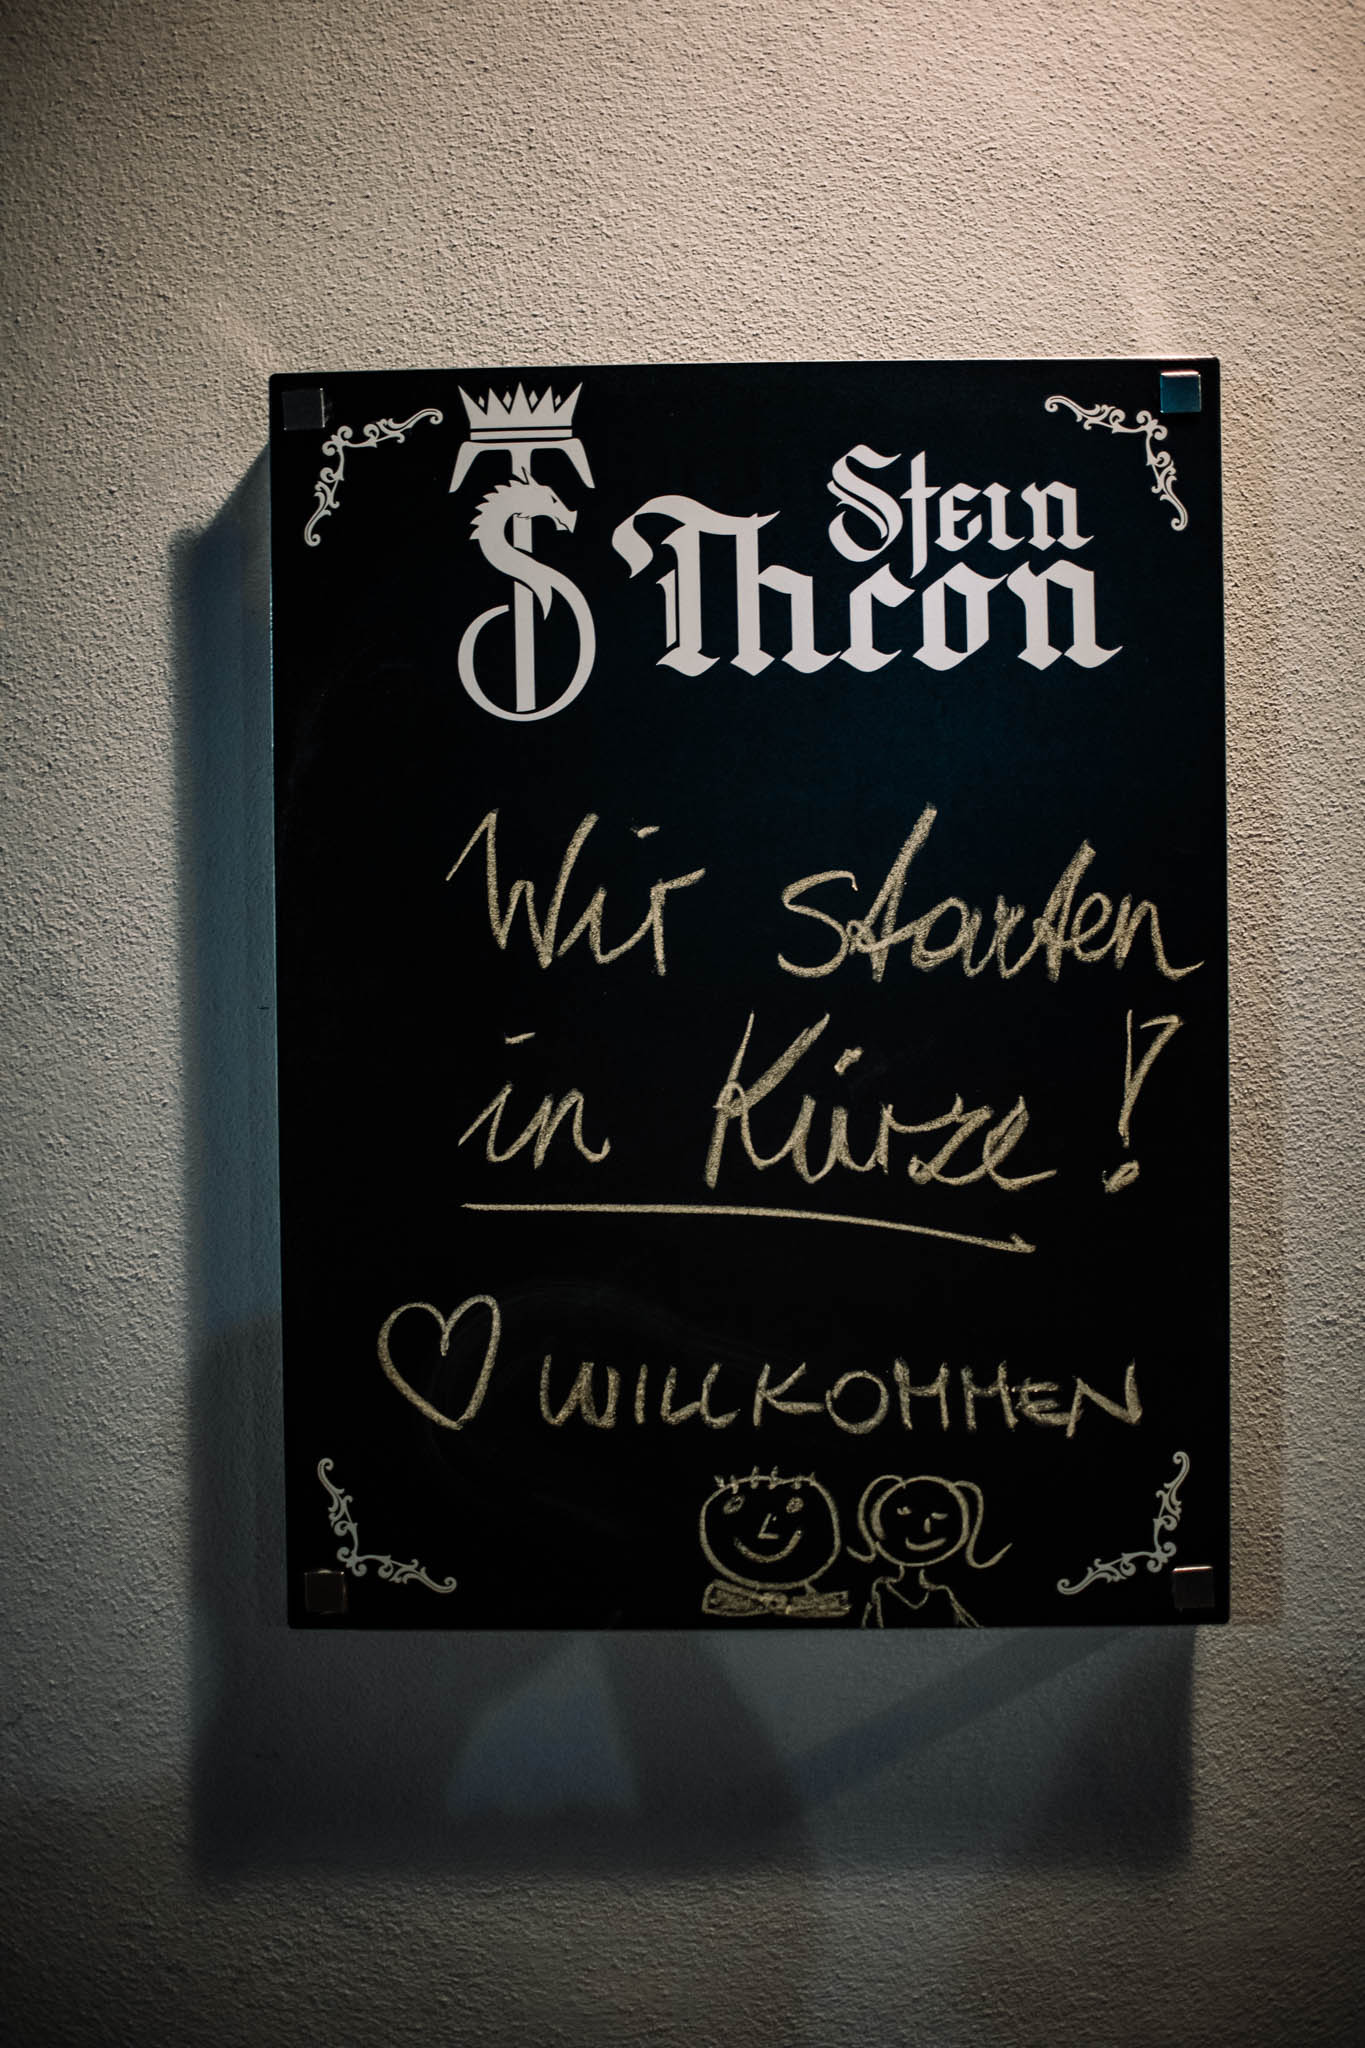 Stein
Thron
Wir starten
in Kürze!
WILLKOMMEN